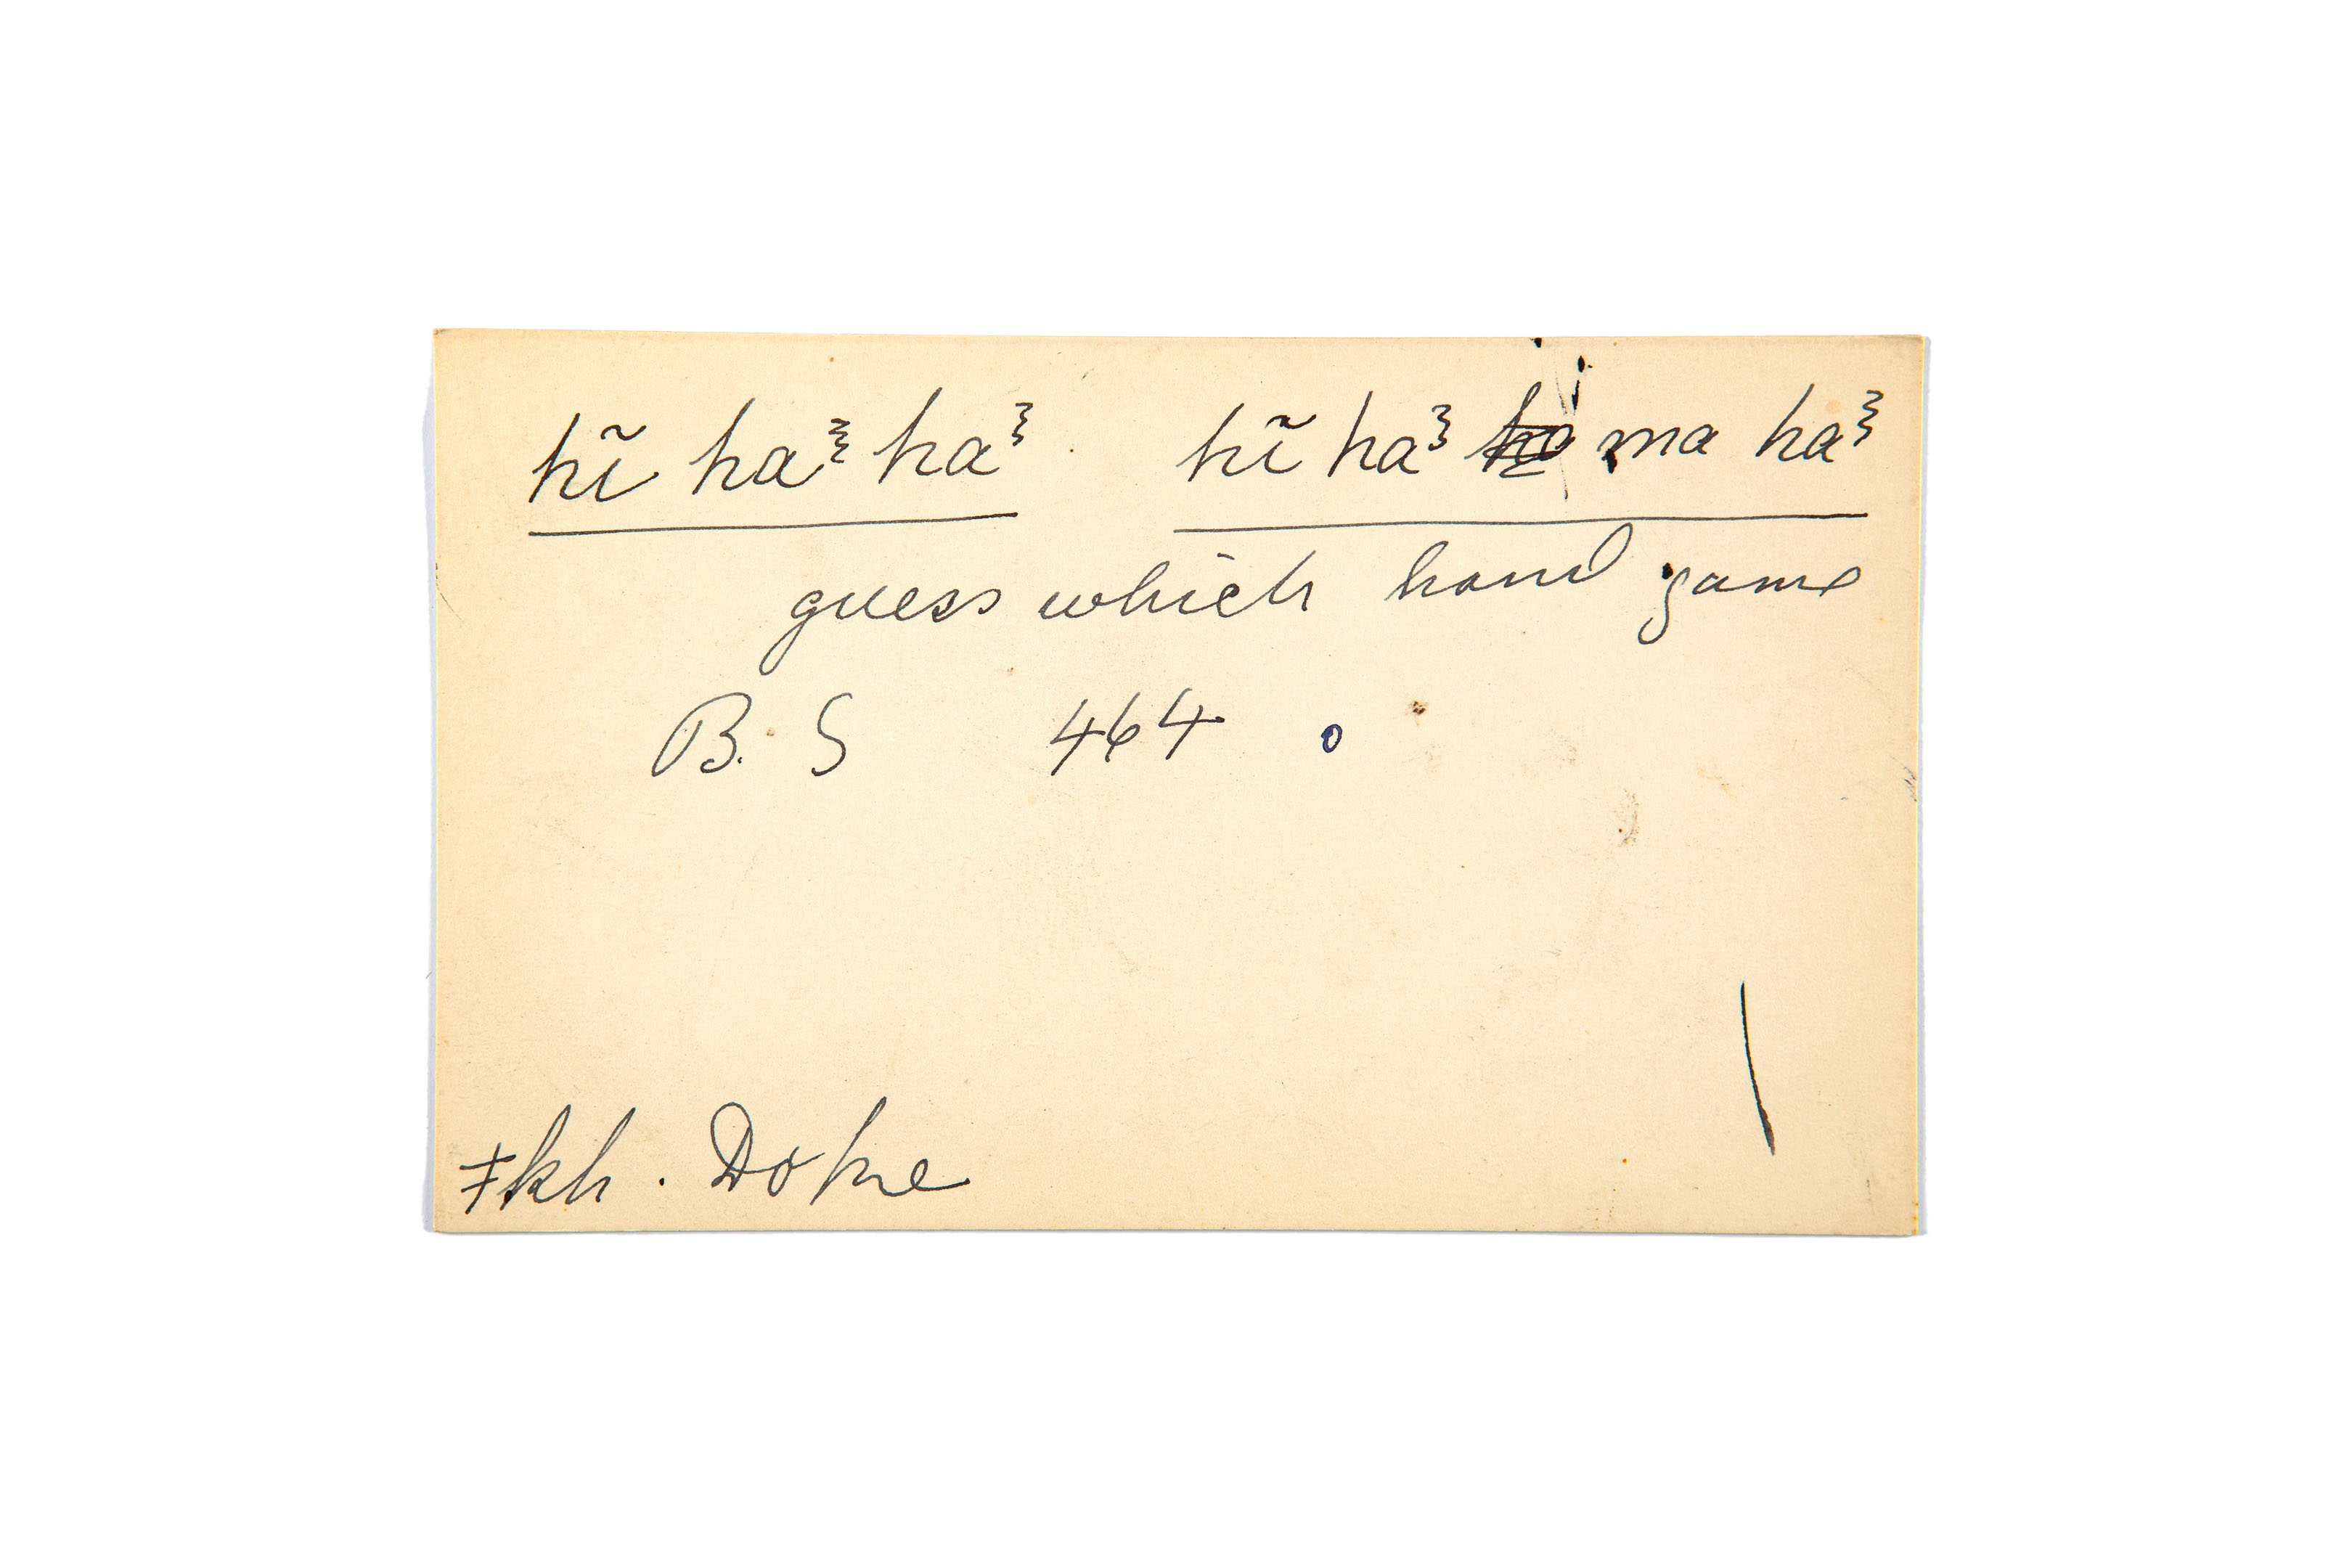 hĩ haꜝ haꜝ . hĩ haꜝ ma haꜝ
guess which hand game
B. S 464 o
ǂkh . Doke